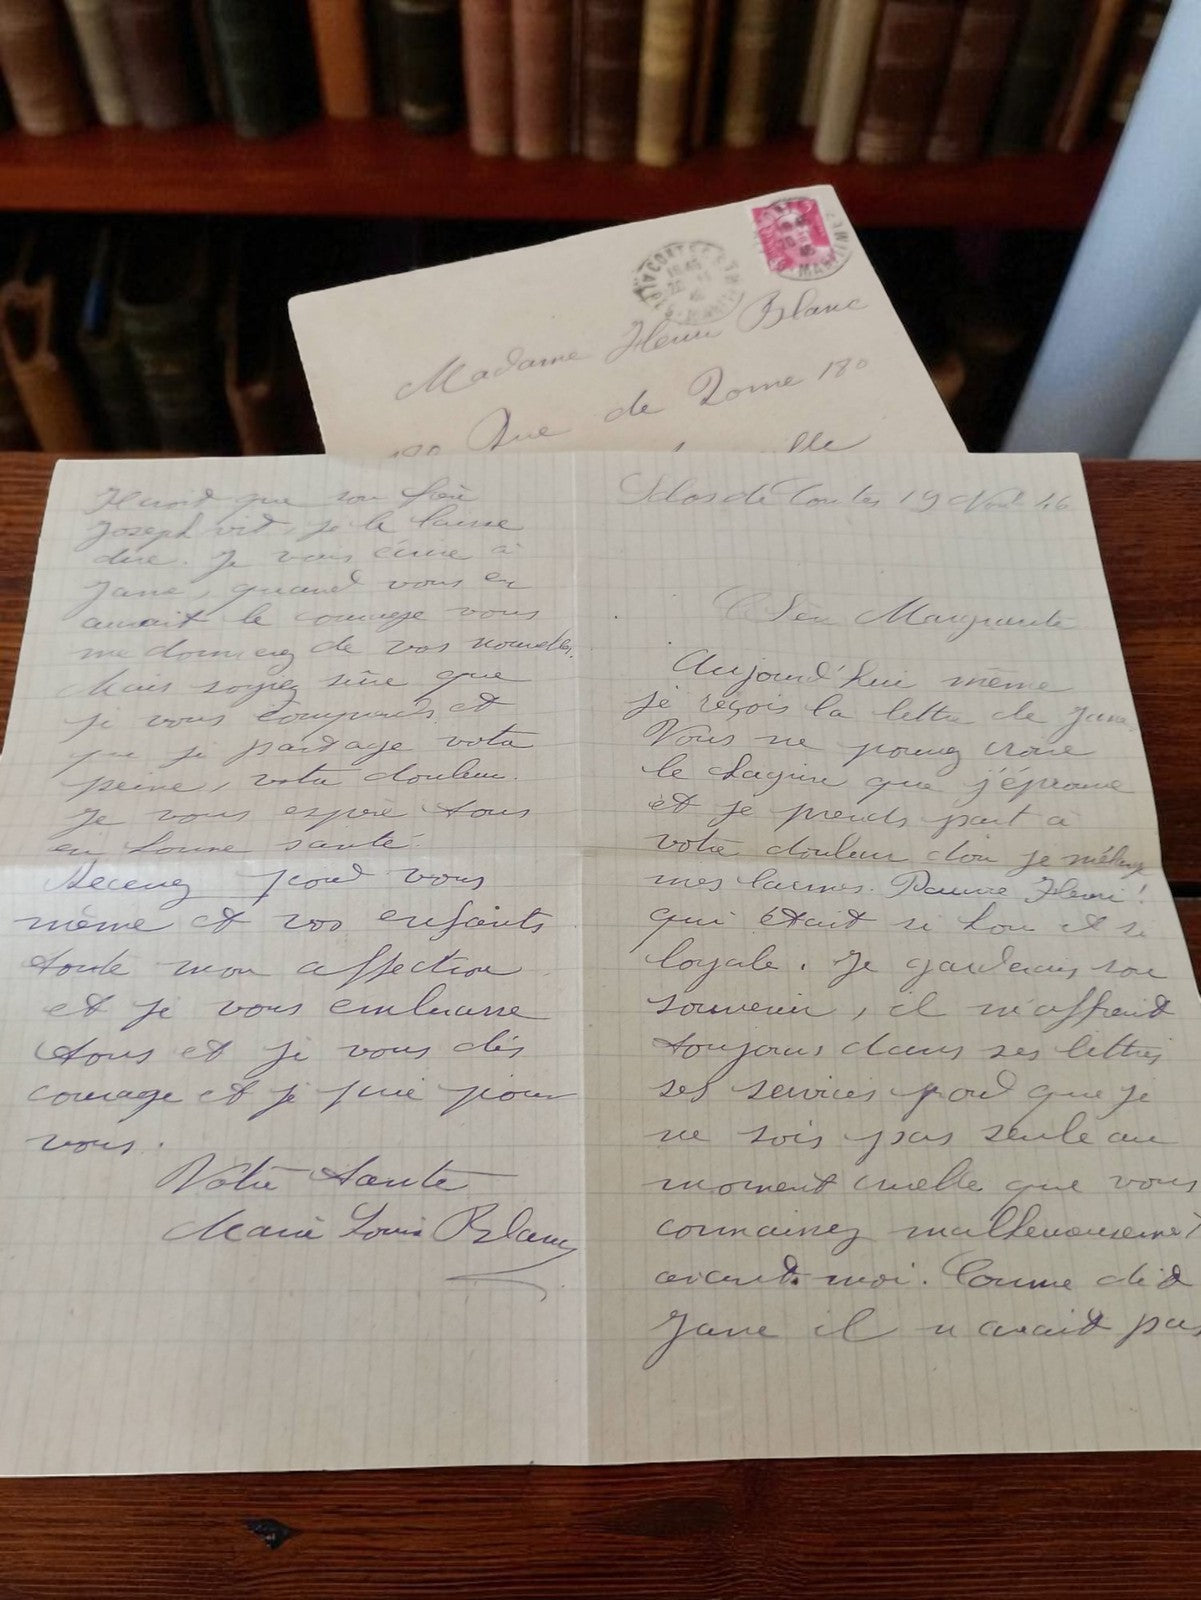 Madame Henri Blanc
180 Rue de Rome 180
Clos de Contes 19 Nov 46
Chère Marguerite
Aujourd'hui même
je reçois la lettre de Jane
Vous ne pouvez croire
le chagrin que j'éprouve
et je prends part à
votre douleur don je mélange
mes larmes. Pauvre Henri!
qui était si bon et si
loyale. Je garderais son
souvenir, il m'offrait
toujours dans ses lettres
ses services pour que je
ne sois pas seule au
moment cruelle que vous
connaissez malheureusement
avant moi. Comme dit
Jane il n'avait pas
que son frère
Joseph vit, je le laisse
dire. Je vais écrire à
Jane, quand vous en
aurait le courage vous
me donnerez de vos nouvelles.
Mais soyez sûre que
je vous comprends et
que je partage votre
peine, votre douleur.
Je vous espère tous
en bonne santé.
Recevez pour vous
même et vos enfants
toute mon affection
et je vous embrasse
tous et je vous dis
courage et je prie pour
vous.
Votre tante
Marie Louise Blanc